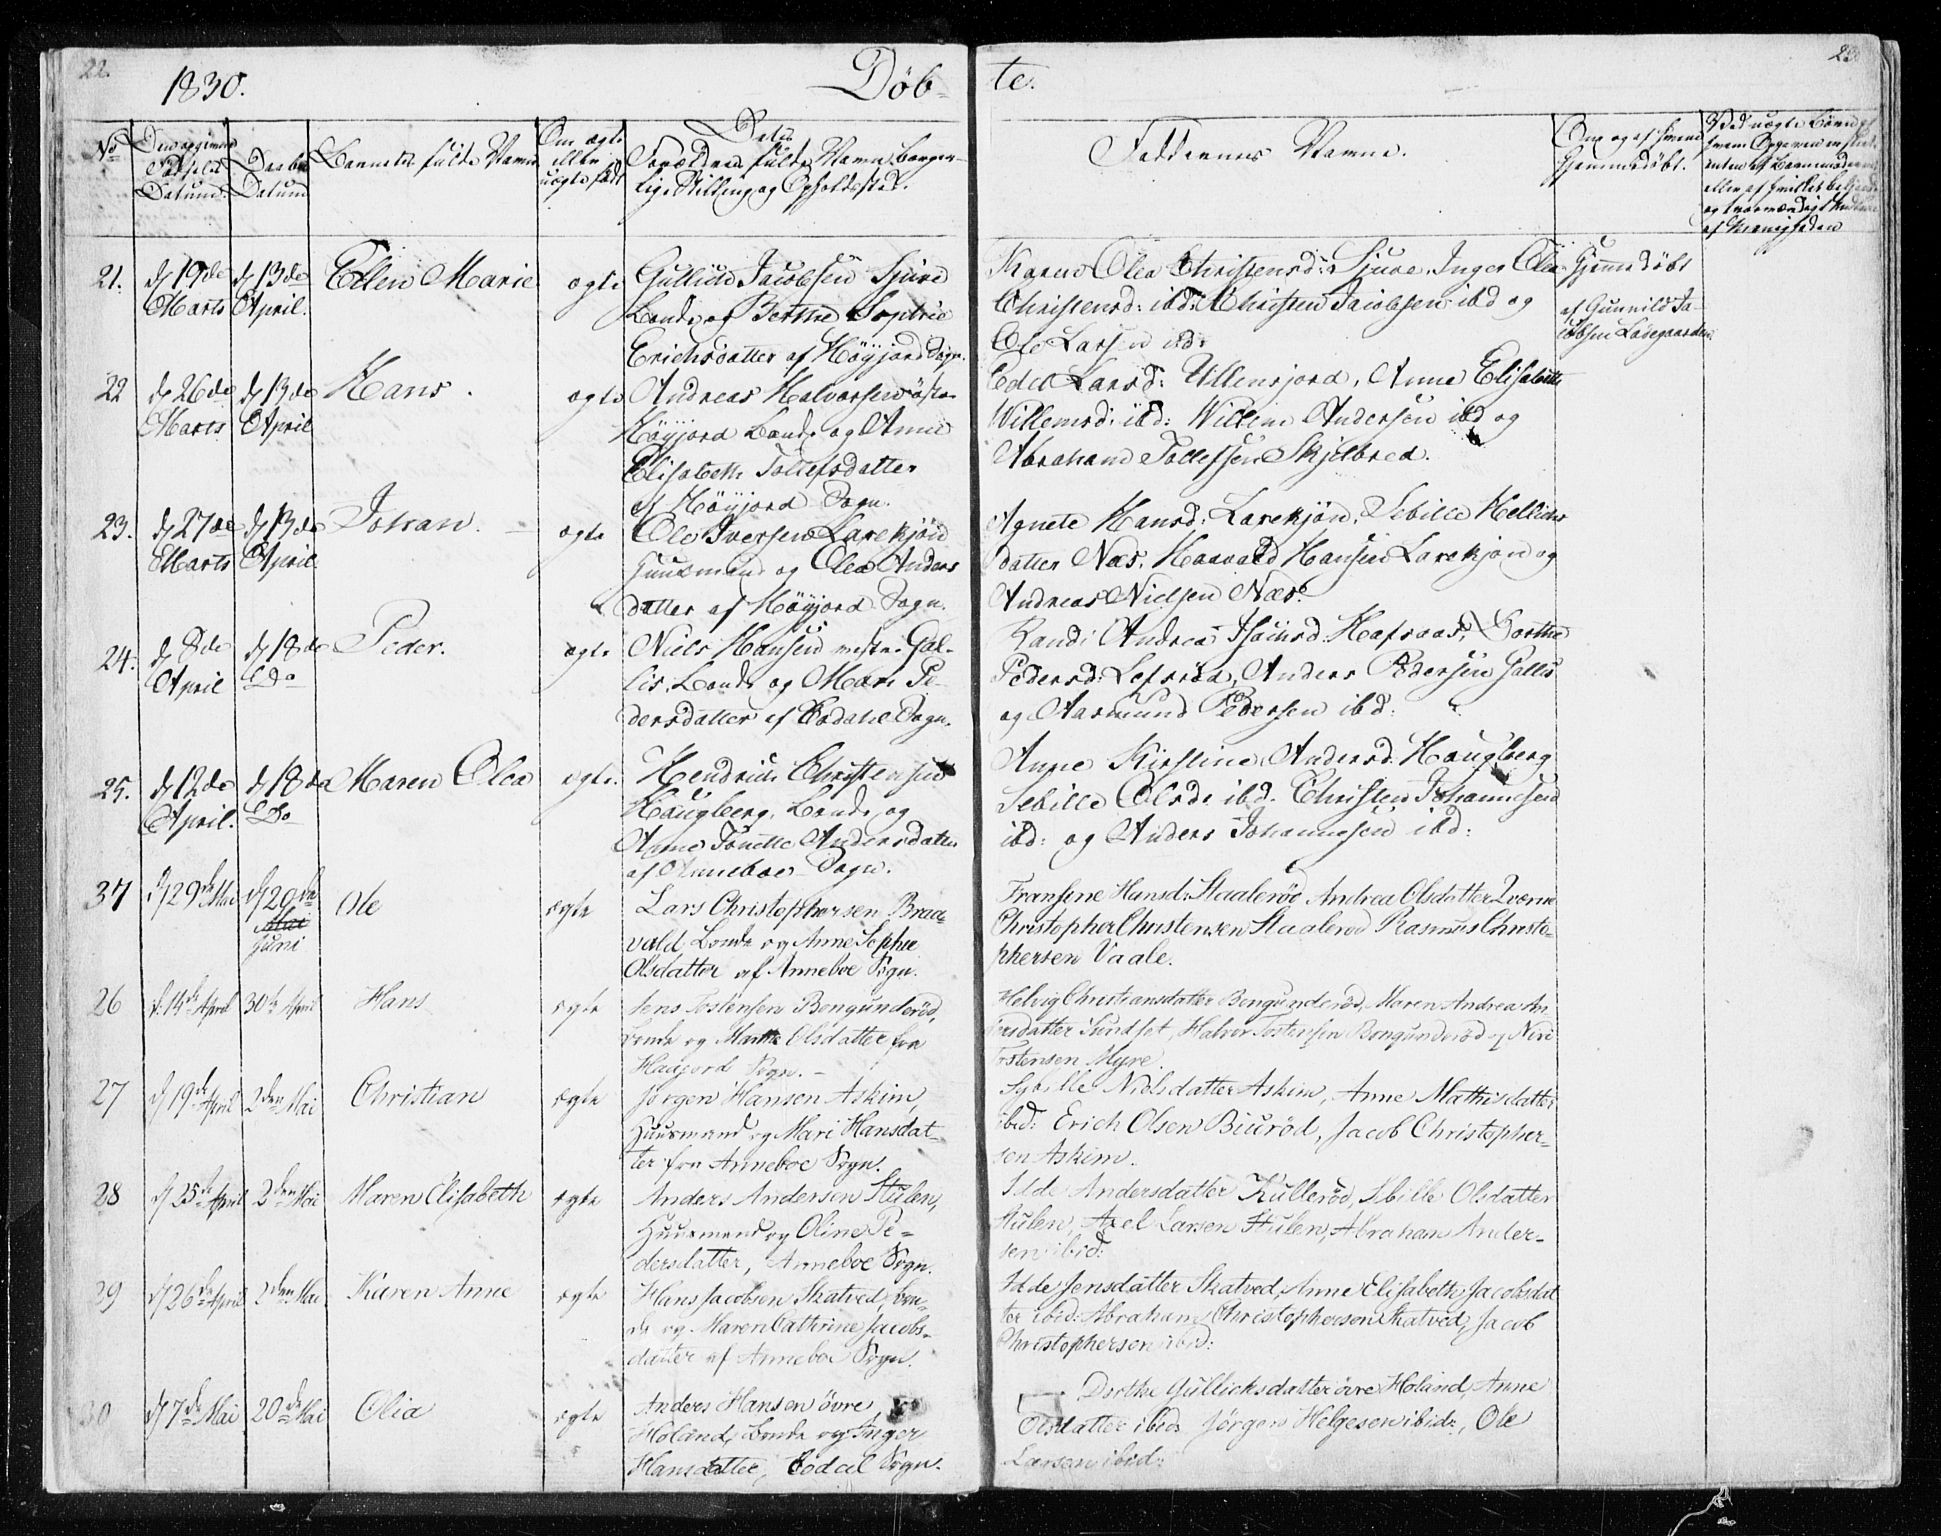 22.
1830.
Døb-
te.
23
No
Den opgivne Fødsels Datum.
Daabs Datum
Barnets fulde Navn
Om ægte eller uægte født
Dets Forældres fulde Navne borgerlige Stilling og Opholdssted.
Faddernes Navne.
Om og af hvem hjemmedøbt.
21.
d 19de Marts
d 13de April.
Ellen Marie
ægte
Gullich Jacobsen Sjue
Bonde og Berthe Sophie
Erichsdatter af Høyjord Sogn.
Karen Olea Christensd: Sjuve, Inger Olea
Christensd: ibd: Christen Jacobsen ibd og
Ole Larsen ibd:
Hjemmedøbt
af Gunnild Ja-
cobsen Ladegaarden
22
d 26de Marts
d 13de April
Hans.
ægte
Andreas Halvorsen østre
Høyjord Bonde og Anne
Elisabeth Tollefsdatter
af Høyjord Sogn.
Edel Larsd: Ullensjord, Anne Elisabeth
Willemsd: ibd: Willem Andersen ibd og
Abraham Tollefsen Skjelbred.
23.
d 27de Marts
d 13de April
Johan.
ægte
Ole Iversen Larekjøn
Huusmand og Olea Anders
datter af Høyjord Sogn.
Agnete Hansd: Larekjøn, Sebille Hellies
datter Næs, Haavald Hansen Larekjøn og
Andreas Nielsen Næs.
24.
d 8de April
d 18de Do
Peder.
ægte
Niels Hansen vestre Gal-
lis, Bonde og Mari Pe-
dersdatter af Kodahl Sogn.
Randi Andrea Isacsd: Hafsaas, Dorthe
Pedersd: Lefsrød, Anders Pedersen Gallis
og Aasmund Pedersen ibd:
25.
d 12de April.
d 18de Do
Maren Olea
ægte.
Hendrich Christensen
Haugberg, Bonde og
Anne Tonette Andersdatter
af Anneboe Sogn.
Anne Kirstine Andersd: Haugberg
Sebille Olsd: ibd. Christen Johannesen
ibd: og Anders Johannesen ibd:
37
d 29de Mai
d 20de
Juni
Ole
ægte
Lars Christophersen Braa-
vald Bonde og Anne Sophie
Olsdatter af Anneboe Sogn.
Fransene Hansd: Staalerød Andrea Olsdatter Qværne
Christopher Christensen Staalerød Rasmus Christo-
phersen Vaale.
26
d. 14de April
30te April
Hans
ægte
Jens Tostensen Bongunderød,
Bonde og Marthe Olsdatter fra
Høijord Sogn. -
Helvig Christiansdatter Bongunderød, Maren Andrea An-
dersdatter Sundset, Halvor Tostensen Bongunderød og
Tostensen Myre.
27
d 19de April
2den Mai
Christian
ægte
Jørgen Hansen Askim,
Huusmand og Mari Hansdat-
ter fra Anneboe Sogn.
Sybille Nielsdatter Askim, Anne Mathisdatter
ibid: Erich Olsen Biurød, Jacob Christopher-
sen Askim.
28
d 25de April
2den Mai
Maren Elisabeth
ægte
Anders Andersen Stulen,
Huusmand og Oline Pe-
dersdatter, Anneboe Sogn.
Idde Andersdatter Kullerød, Sibille Olsdatter
Stulen, Axel Larsen Stulen, Abraham Ander-
sen ibid:
29
d 26de April
2den Mai
Karen Anne
ægte
Hans Jacobsen Skatved, Bon-
de og Maren Cathrine Jacobs-
datter af Anneboe Sogn.
Idde Jensdatter Skatved, Anne Elisabeth Jacobsdat
ter ibid: Abraham Christophersen Skatved, Jacob
Christophersen ibid:
30
d 7de Mai
20de Mai
Olia
ægte
Anders Hansen øvre
Holand, Bonde og Inger
Hansdatter, Kodal Sogn.
Dorthe Gullichsdatter øvre Holand, Anne
Olsdatter ibid: Jørgen Helgesen ibid:, Ole
Larsen ibid: